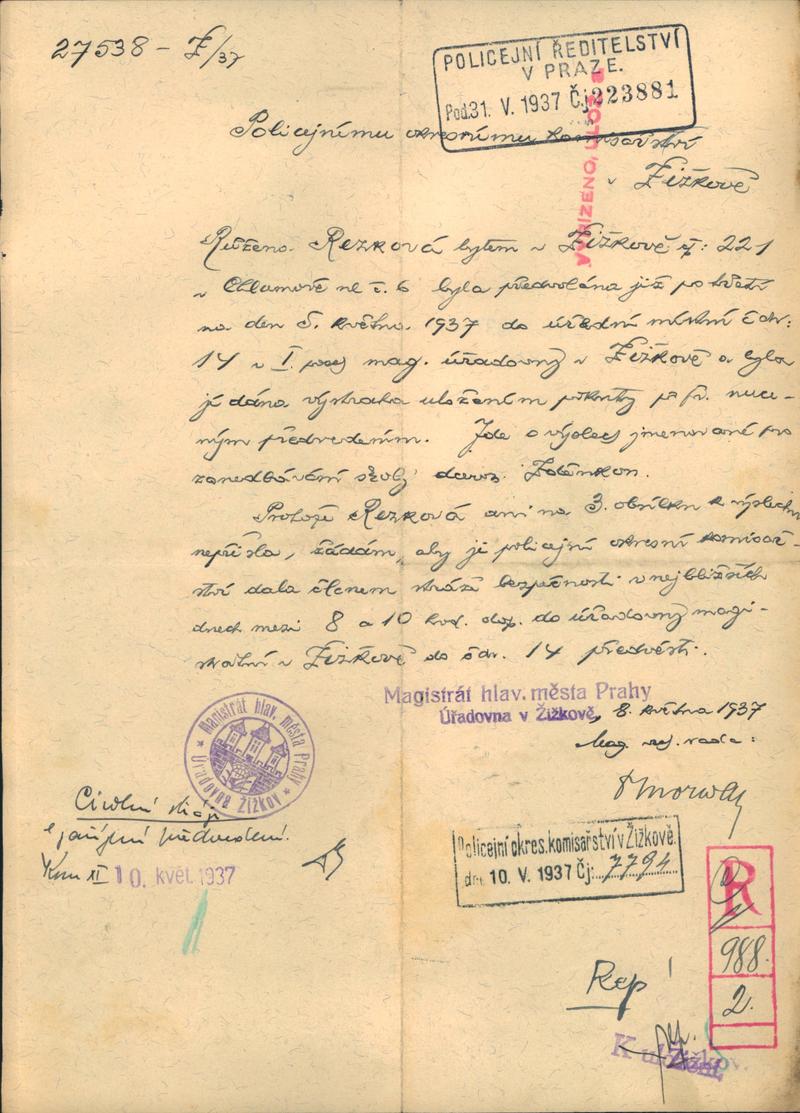 27538 - Ž/37
POLICEJNÍ ŘEDITELSTVÍ
V PRAZE.
Pod. 31. V. 1937 Čj. 223881
VYŘÍZENO, ULOŽ
Policejnímu okresnímu komisařství
v Žižkově
Růžena Rezková bytem v Žižkově čp: 221
v Chlumově ul č. 6 byla předvolána již po třetí
na den 5. května 1937 do úřední místní č dv:
14 v I. posch mag. úřadovny v Žižkově a byla
jí dána výstraha uložením pokuty př. nuce-
ným předvedením. Jde o výslech jmenované pro
zanedbávání školy dcerou Zdenkou.
Protože Rezková ani na 3. obsílku k výslechu
nepřišla, žádám, aby ji policejní okresní komisař-
ství dala členem stráže bezpečnosti v nejbližších
dnech mezi 8 a 10 hod. dop. do úřadovny magi-
strátní v Žižkově do č dv. 14 předvésti.
Magistrát hlav. města Prahy
Úřadovna v Žižkově, 8. května 1937
Mag. rada:
Magistrát hlav. města Prahy
Úřadovna Žižkov
Civilní stráž
předvedení.
Kom XI 10. květ. 1937
Policejní okres. komisařství v Žižkově.
dne 10. V. 1937 Čj: 7794
R
988.
2.
Rep!
K uložení
Žižkov